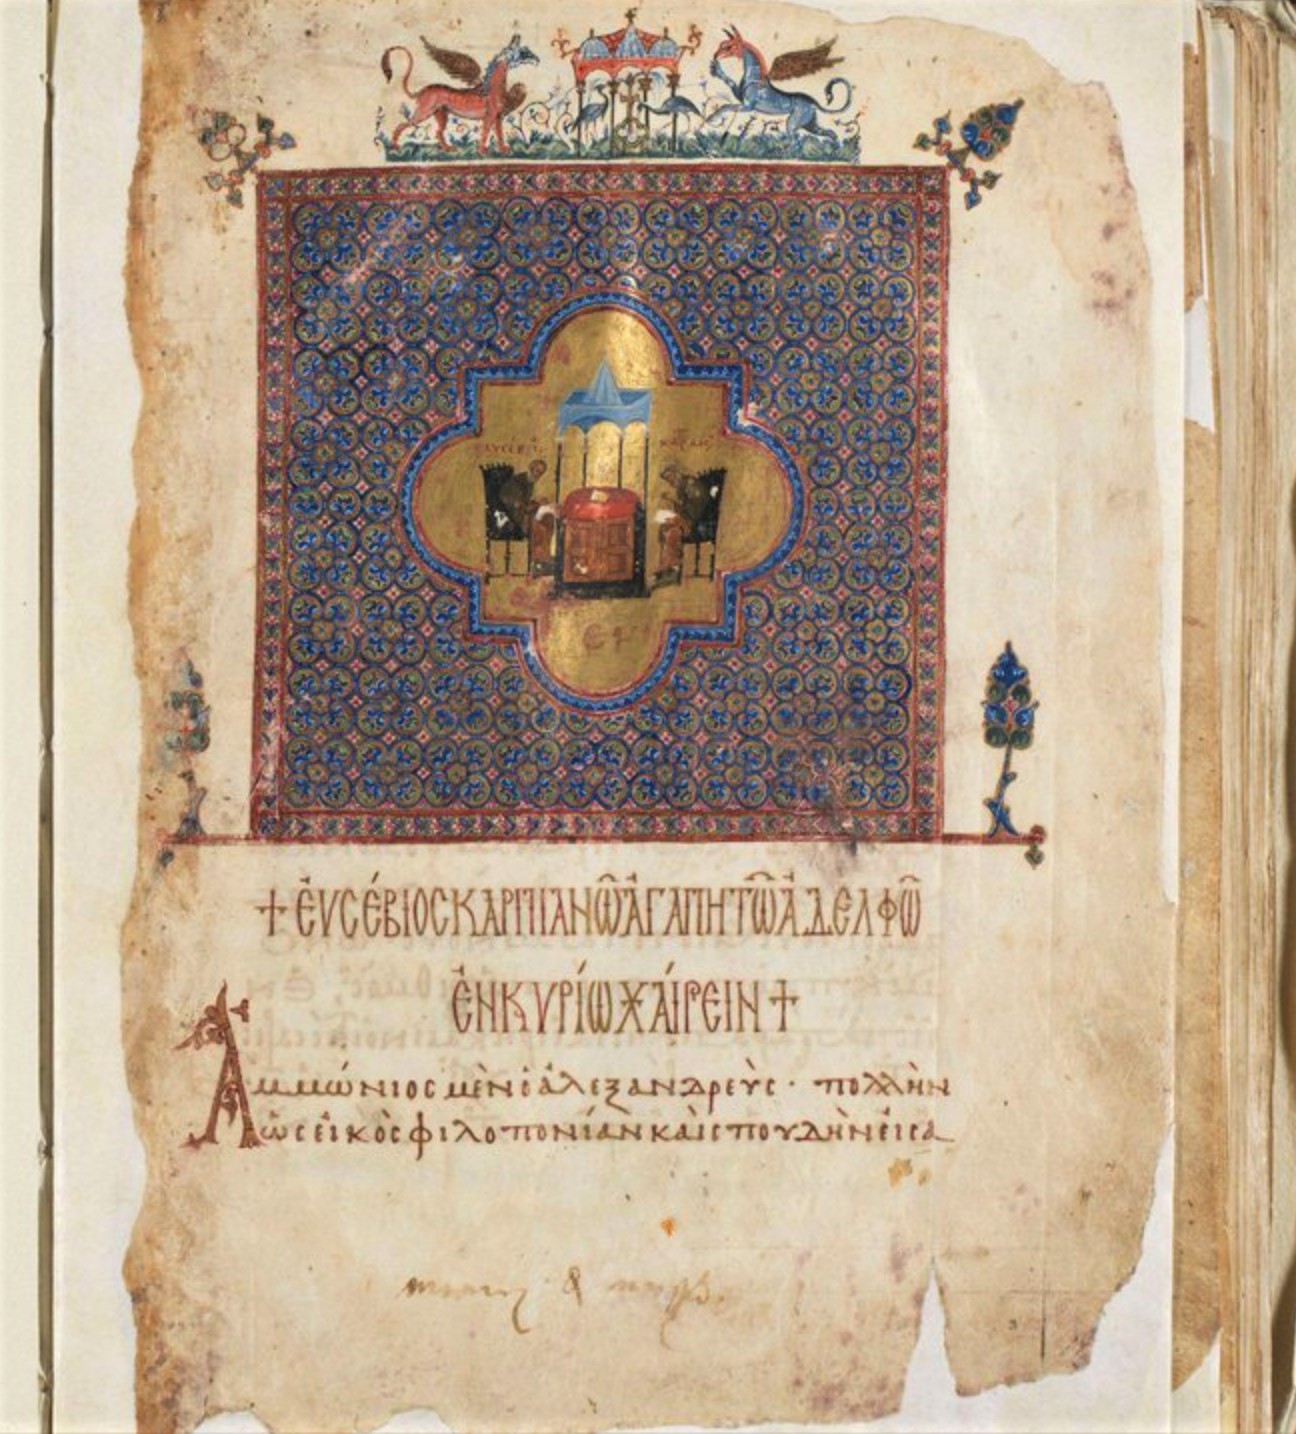 ΕΥCΕΒΙ
+ ἘΥCΈΒΙΟCΚΑΡΠΙΑΝΩ͂ἈΓΑΠΗΤΩ͂ἈΔΕΛΦΩ͂
ἘΝΚΥΡΊΩΧΑΊΡΕΙΝ +
Ἀμμώνιος μὲν ὁ ἀλεξανδρεὺς · πολλὴν
ὡς εἰκὸς φιλοπονίαν καὶ σπουδὴν εἰσα